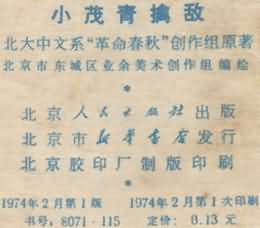 小茂青擒敌
北大中文系“革命春秋”创作组原著
北京市东城区业余美术创作组编绘
*
北京人民出版社出版
北京市新华书店发行
北京胶印厂制版印刷
*
1974年2月第1版 1974年2月第1次印刷
书号：8071·115 定价：0.13元